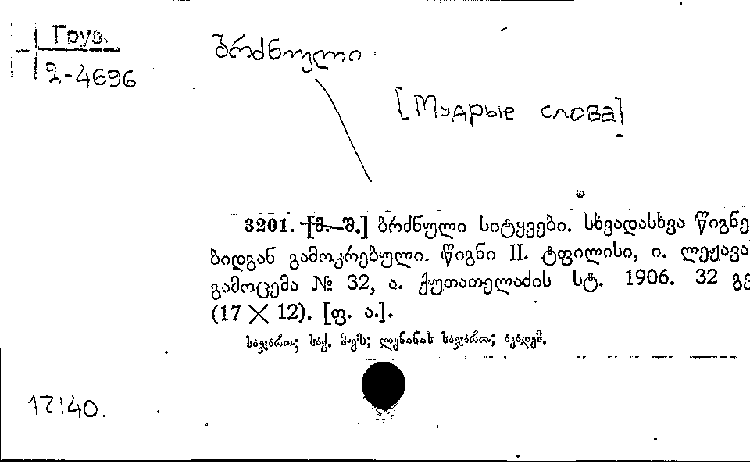 Груз.
2-4696
ბრძნული
[Мудрые слова]
3201. [მ. შ.] ბრძნული სიტყვები. სხვადასხვა წიგნე
ბიდგან გამოკრებული. წიგნი II. ტფილისი, ი. ლეჟავა
გამოცემა № 32, ა. ქუთათელაძის სტ. 1906. 32 გვ
(17 × 12). [ფ. ა.].
საჯარო; საქ. მუზ; ლენინის საჯარო; აკადემ.
12140.